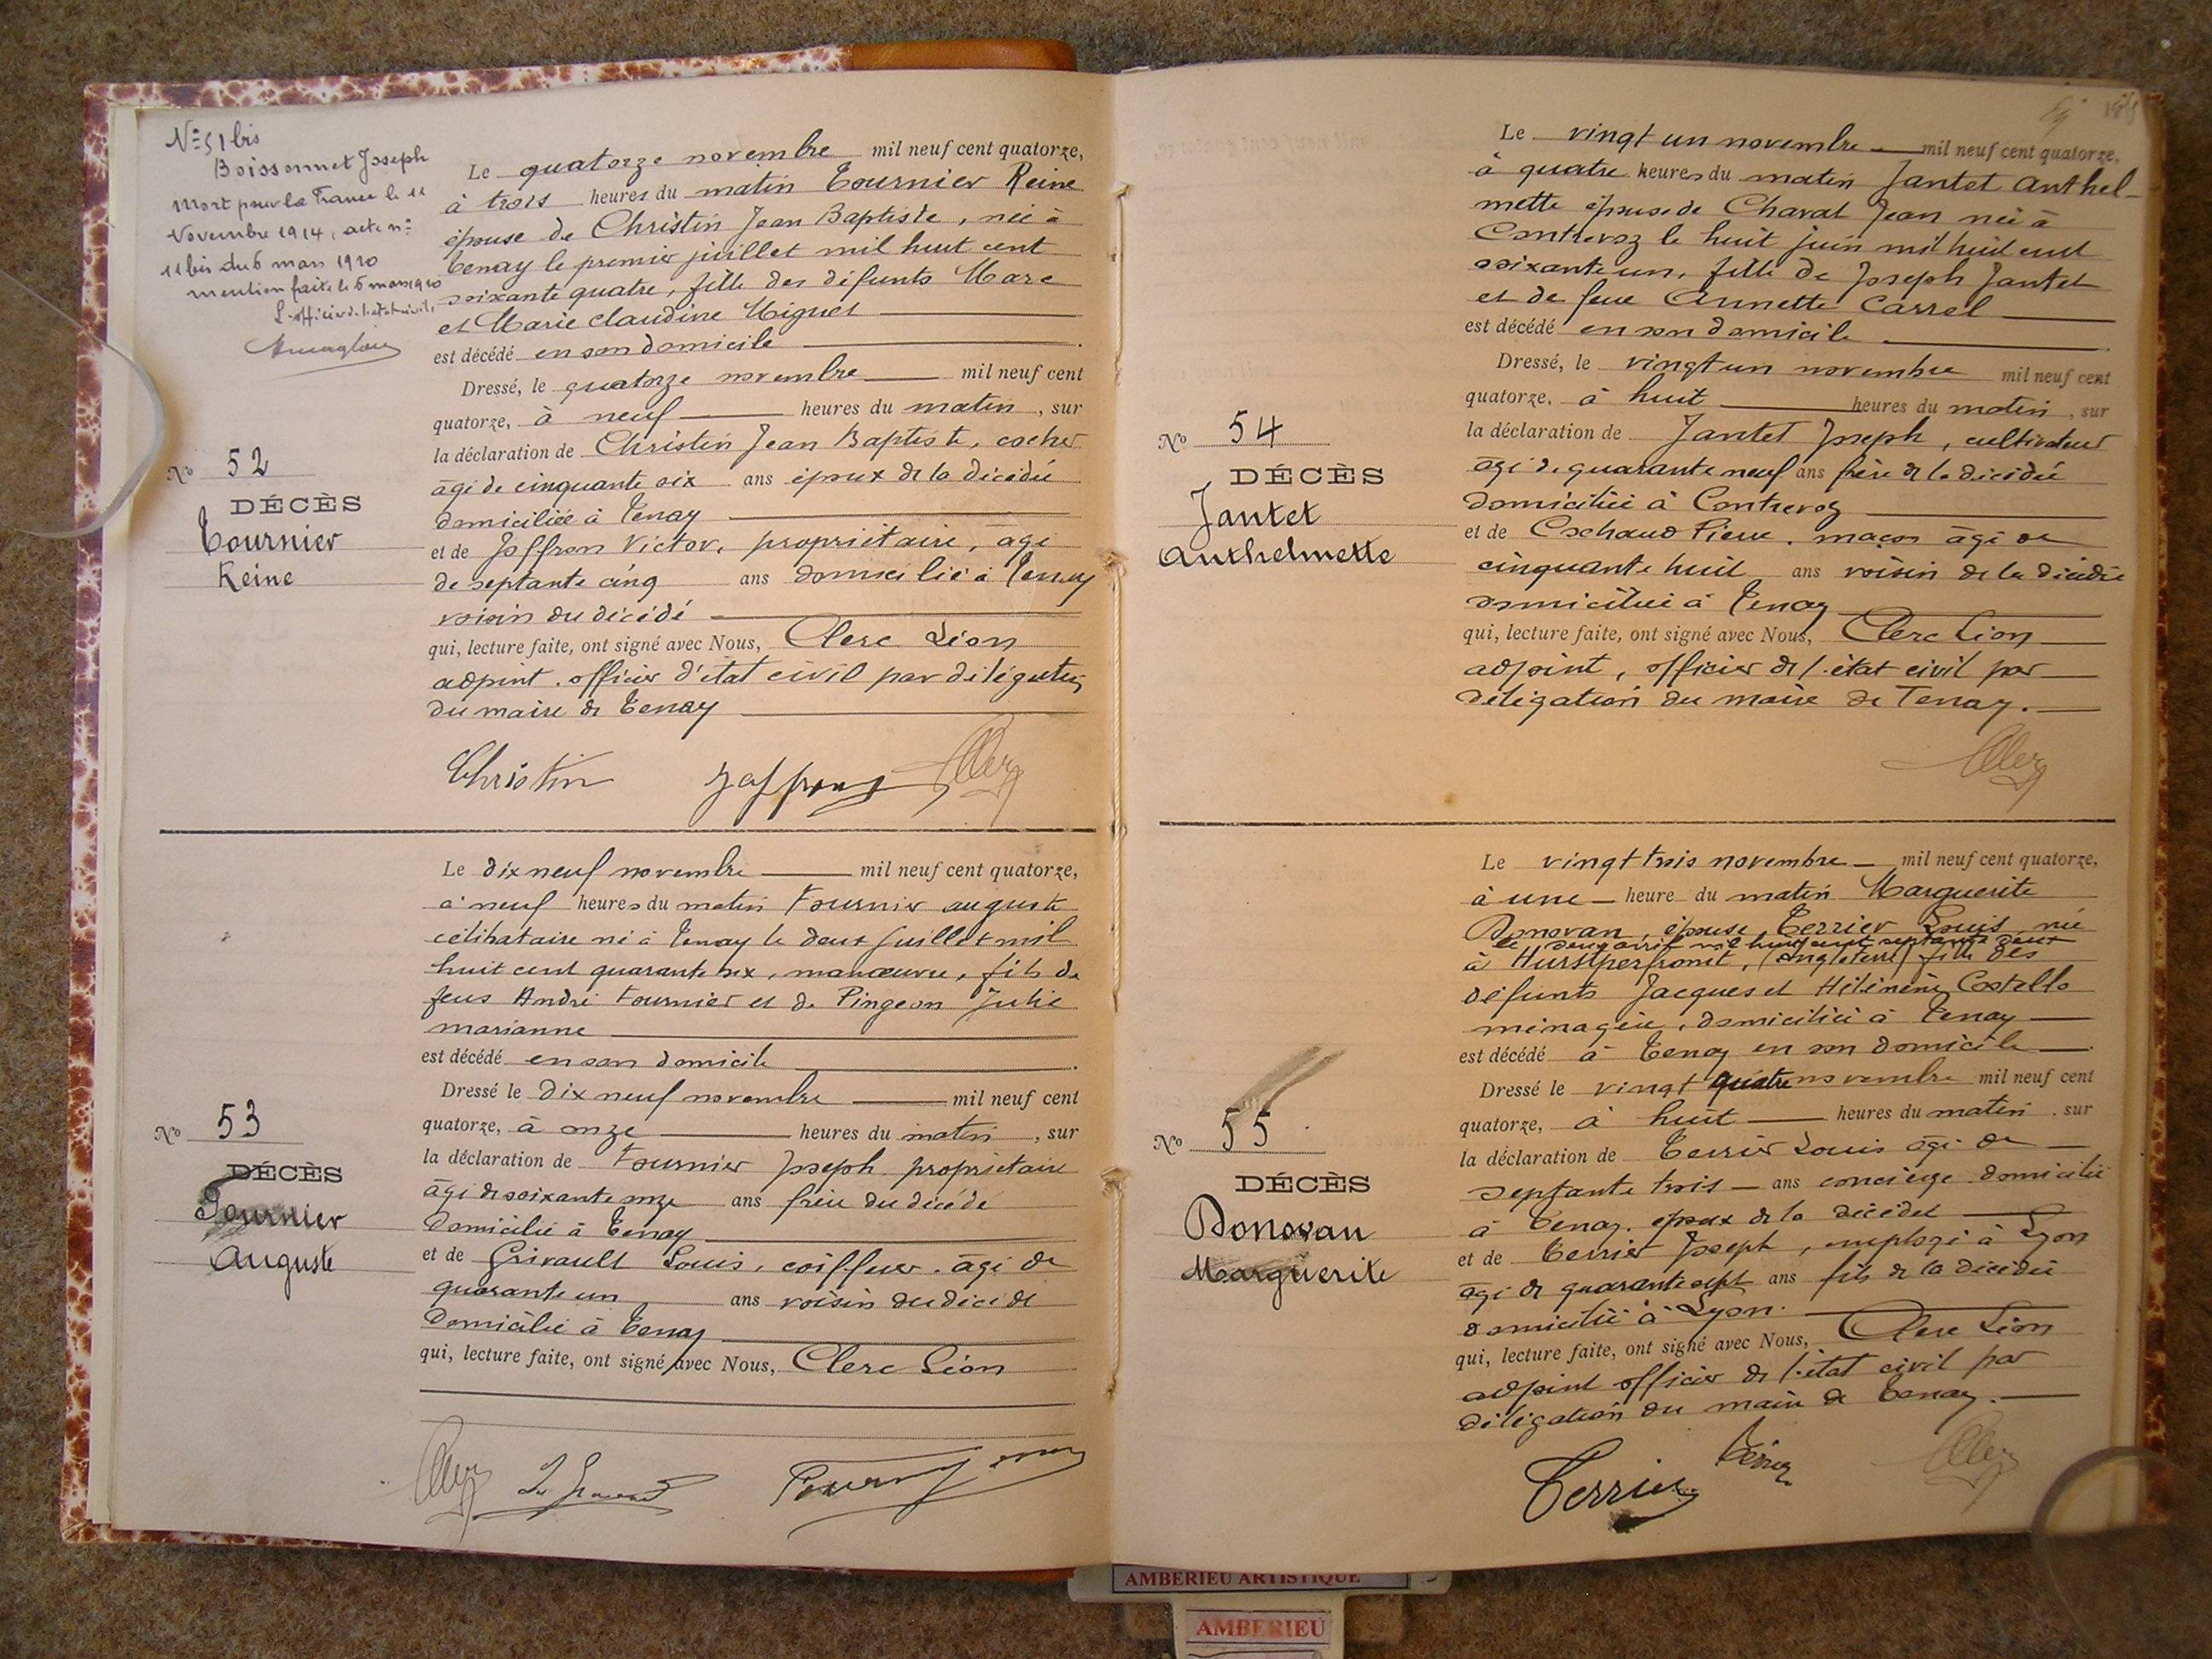 N° 51 bis
Boissonnet Joseph
mort pour la France le 11
Novembre 1914, acte n°
11 bis du 6 mars 1920
mention faite le 6 mars 1920
L'officier de l'état civil,
Le quatorze novembre mil neuf cent quatorze,
à trois heures du matin Tournier Reine
épouse de Christin Jean Baptiste, née à
Tenay le premier juillet mil huit cent
soixante quatre, fille des défunts Marc
et Marie Claudine Miguet
est décédé en son domicile
Dressé, le quatorze novembre mil neuf cent
quatorze, à neuf heures du matin, sur
la déclaration de Christin Jean Baptiste, cocher
âgé de cinquante six ans époux de la décédée
domiciliée à Tenay
et de Joffron Victor, propriétaire, âgé
de septante cinq ans domicilié à Tenay
voisin du décédé
qui, lecture faite, ont signé avec Nous, Clerc Léon
adjoint, officier d'état civil par délégation
du maire de Tenay
N° 52
DÉCÈS
Tournier
Reine
Christin
Le dix neuf novembre mil neuf cent quatorze,
à neuf heures du matin Fournier auguste
célibataire né à Tenay le deux Juillet mil
huit cent quarante six, manœuvre, fils de
feus André Fournier et de Pingeon Julie
marianne
est décédé en son domicile
Dressé le dix neuf novembre mil neuf cent
quatorze, à onze heures du matin, sur
la déclaration de Fournier Joseph propriétaire
âgé de soixante onze ans frère du décédé
domicilié à Tenay
et de Grivault Louis, coiffeur, âgé de
quarante un ans voisin du décédé
domicilié à Tenay
qui, lecture faite, ont signé avec Nous, Clerc Léon
N° 53
DÉCÈS
Fournier
Auguste
Le vingt un novembre mil neuf cent quatorze,
à quatre heures du matin Jantet Anthel-
mette épouse de Charat Jean née à
Contrevoz le huit juin mil huit cent
soixante un, fille de Joseph Jantet
et de feue Annette Carrel
est décédé en son domicile
Dressé, le vingt un novembre mil neuf cent
quatorze, à huit heures du matin, sur
la déclaration de Jantet Joseph, cultivateur
âgé de quarante neuf ans frère de la décédée
domiciliée à Contrevoz
et de Cochaud Pierre, maçon âgé de
cinquante huit ans voisin de la décédée
domiciliée à Tenay
qui, lecture faite, ont signé avec Nous, Clerc Léon
adjoint, officier de l'état civil par
délégation du maire de Tenay.
N° 54
DÉCÈS
Jantet
Anthelmette
Le vingt trois novembre mil neuf cent quatorze,
à une heure du matin Marguerite
Donovan, épouse Terrier Louis, née
le deux avril mil huit cent septante deux
à Hurstperfront, (Angleterre) fille des
défunts Jacques et Hélénène Costello
ménagère, domiciliée à Tenay
est décédé à Tenay en son domicile
Dressé le vingt quatre novembre mil neuf cent
quatorze, à huit heures du matin, sur
la déclaration de Terrier Louis âgé de
septante trois ans concierge domicilié
à Tenay, époux de la décédée
et de Terrier Joseph, employé à Lyon
âgé de quarante sept ans fils de la décédée
domicilié à Lyon.
qui, lecture faite, ont signé avec Nous, Clerc Léon
adjoint officier de l'état civil par
délégation du maire de Tenay.
N° 55
DÉCÈS
Donovan
Marguerite
Terrier
AMBERIEU ARTISTIQUE
AMBERIEU